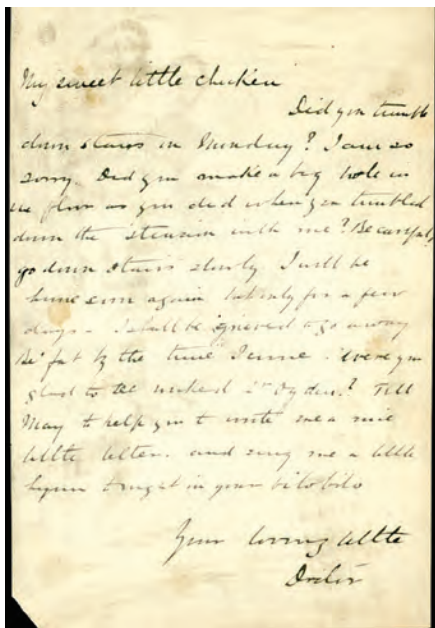 My sweet little chicken
Did you tumble
down stairs on Monday? I am so
sorry. Did you make a big hole in
the floor as you did when you tumbled
down the with me? Be careful,
go down stairs slowly. I will be
home soon again but only for a few
days. I shall be grieved to go away
Be fat by the time I come. Were you
glad to see Dr Ogden? Tell
May to help you to write me a nice
little letter. and sing me a little
hymn tonight in your
Your loving little